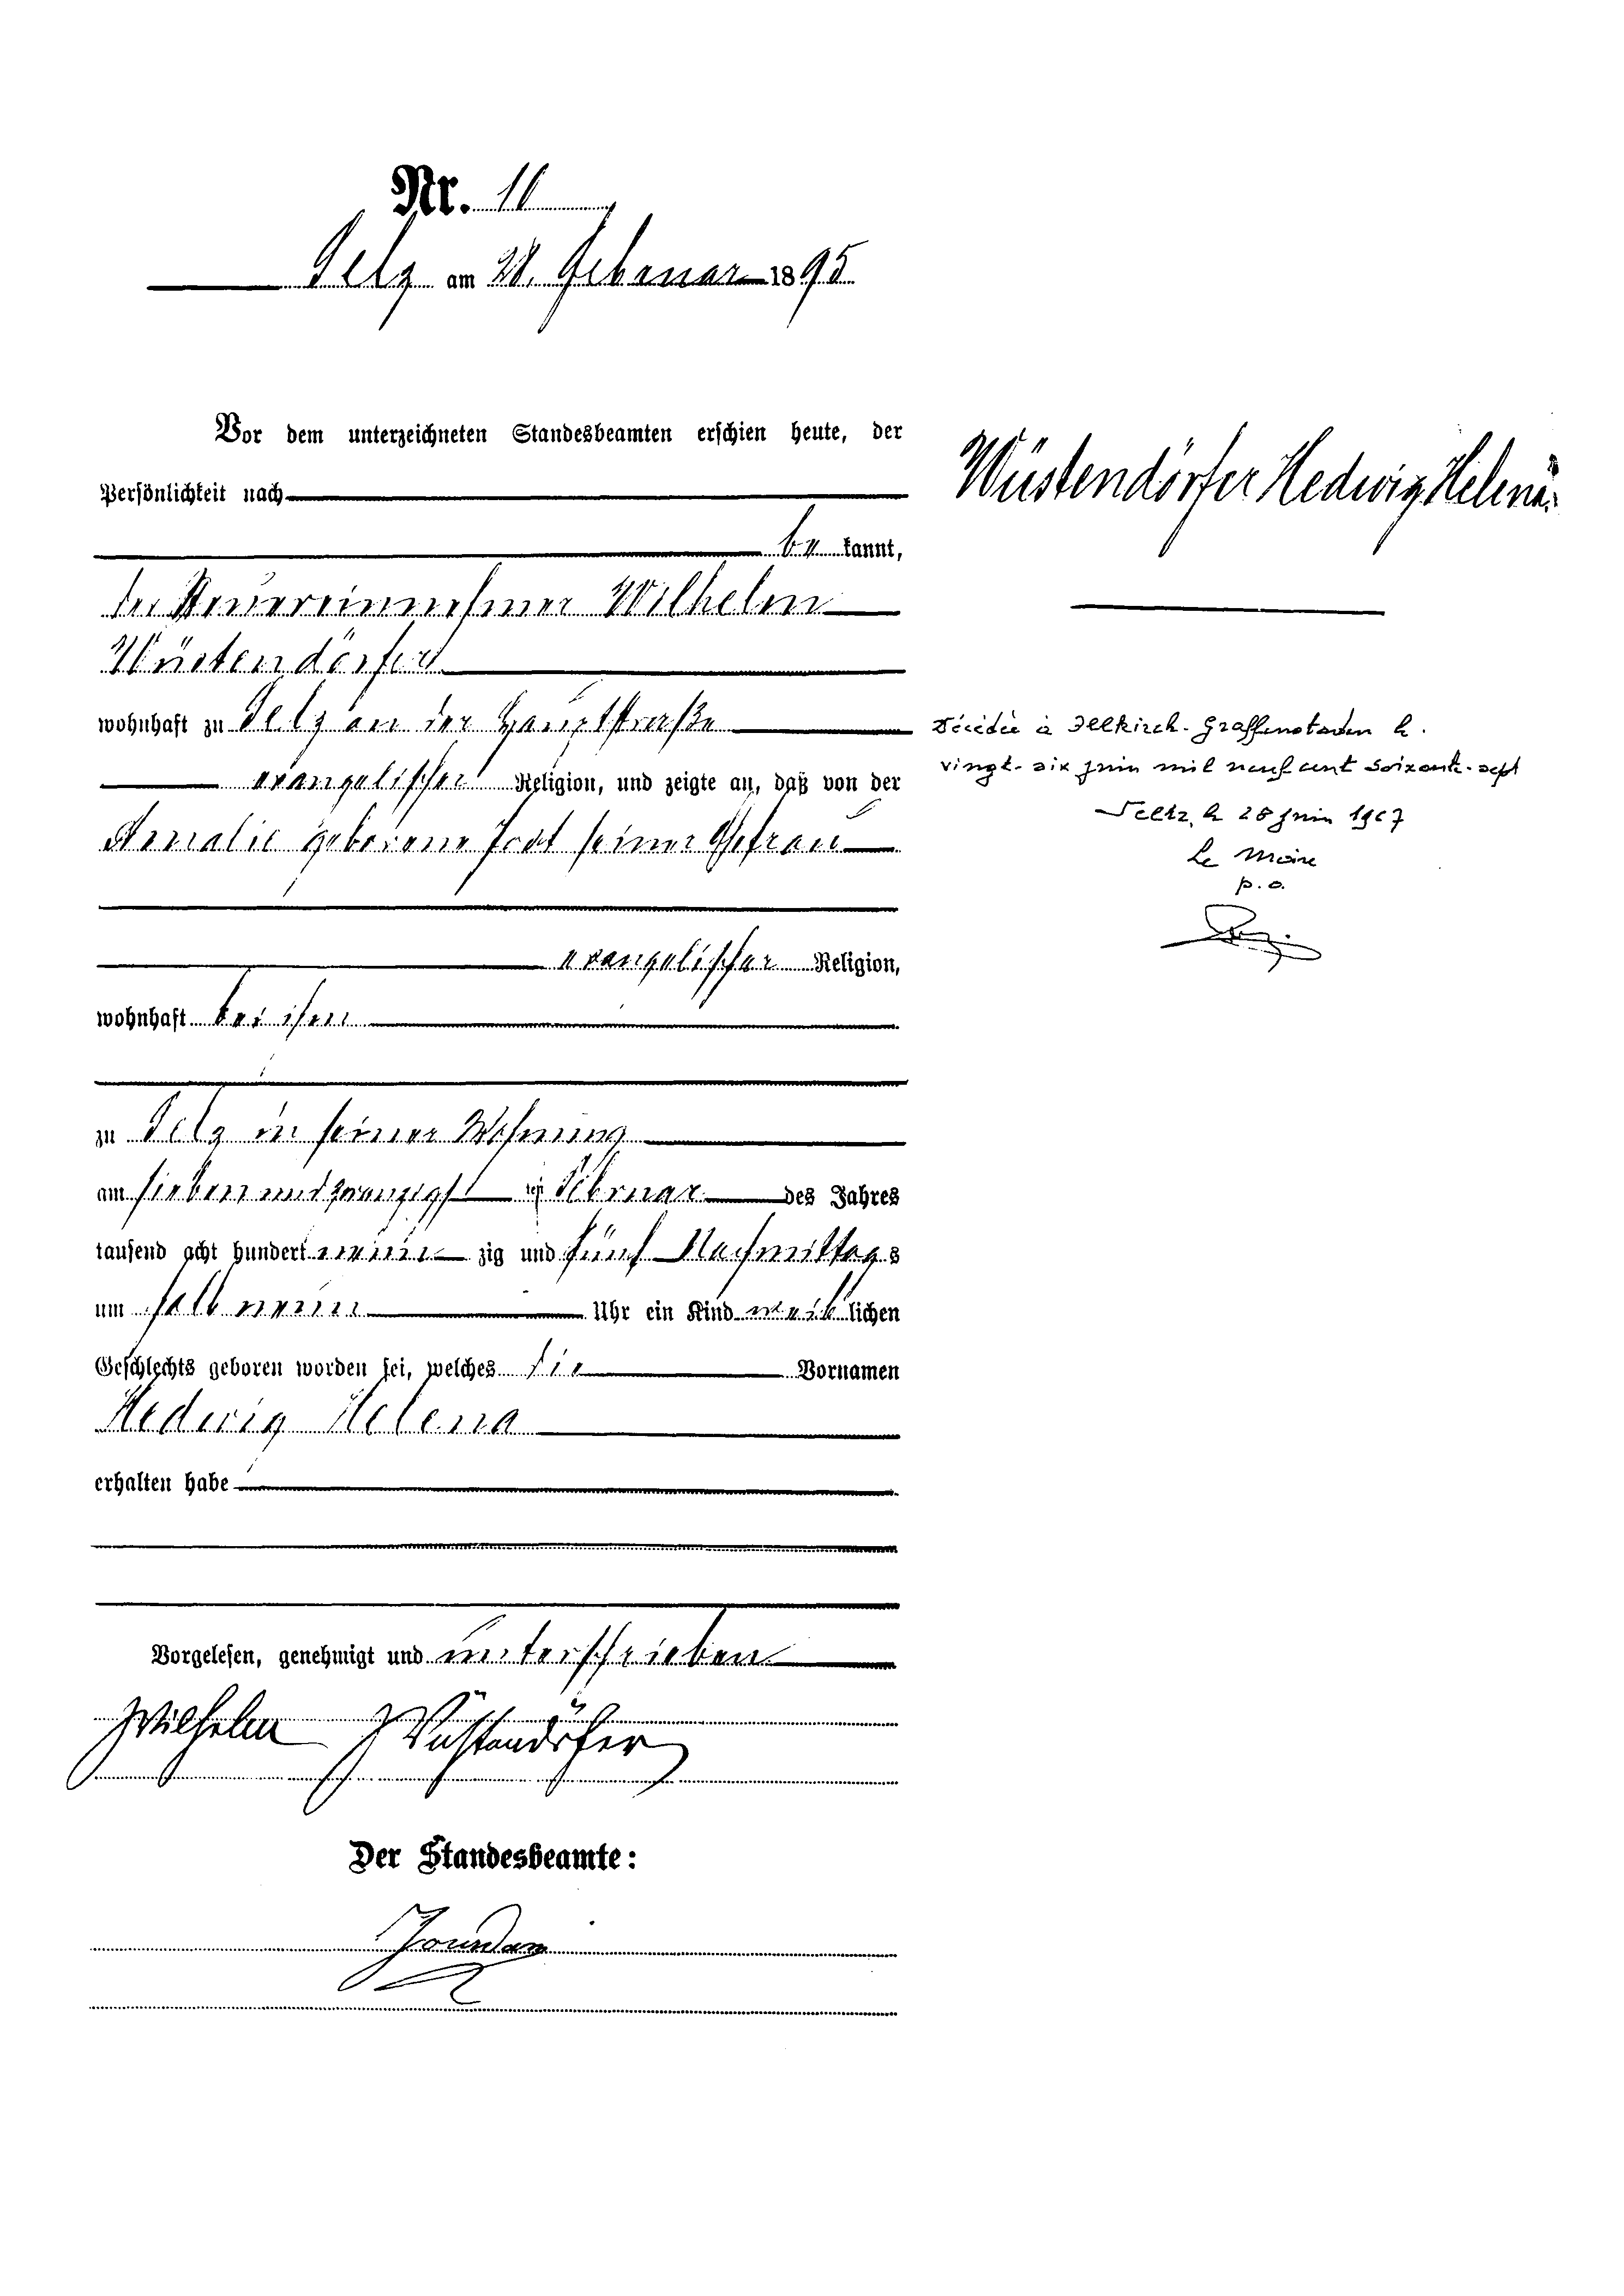 Nr. 10
Selz am 28. Februar 1895
Vor dem unterzeichneten Standesbeamten erschien heute, der
Persönlichkeit nach
be kannt,
der Steuereinnehmer Wilhelm
Wüstendörfer
wohnhaft zu Selz an der Hauptstraße
evangelischer Religion, und zeigte an, daß von der
Amalie geborene seiner Ehefrau
evangelischer Religion,
wohnhaft bei ihm
zu Selz in seiner Wohnung
am sieben und zwanzigst ten Februar des Jahres
tausend acht hundert neun zig und fünf Nachmittags
um halb neun Uhr ein Kind weib lichen
Geschlechts geboren worden sei, welches die Vornamen
Hedwig Helena
erhalten habe
Vorgelesen, genehmigt und unterschrieben
Wilhelm Wüstendörfer
Der Standesbeamte:
Jourdan
Wüstendörfer Hedwig Helena.
Décédée à Illkirch-Graffenstaden le
vingt-six juin mil neuf cent soixante-sept
Seltz, le 28 juin 1967
Le Maire
p.o.